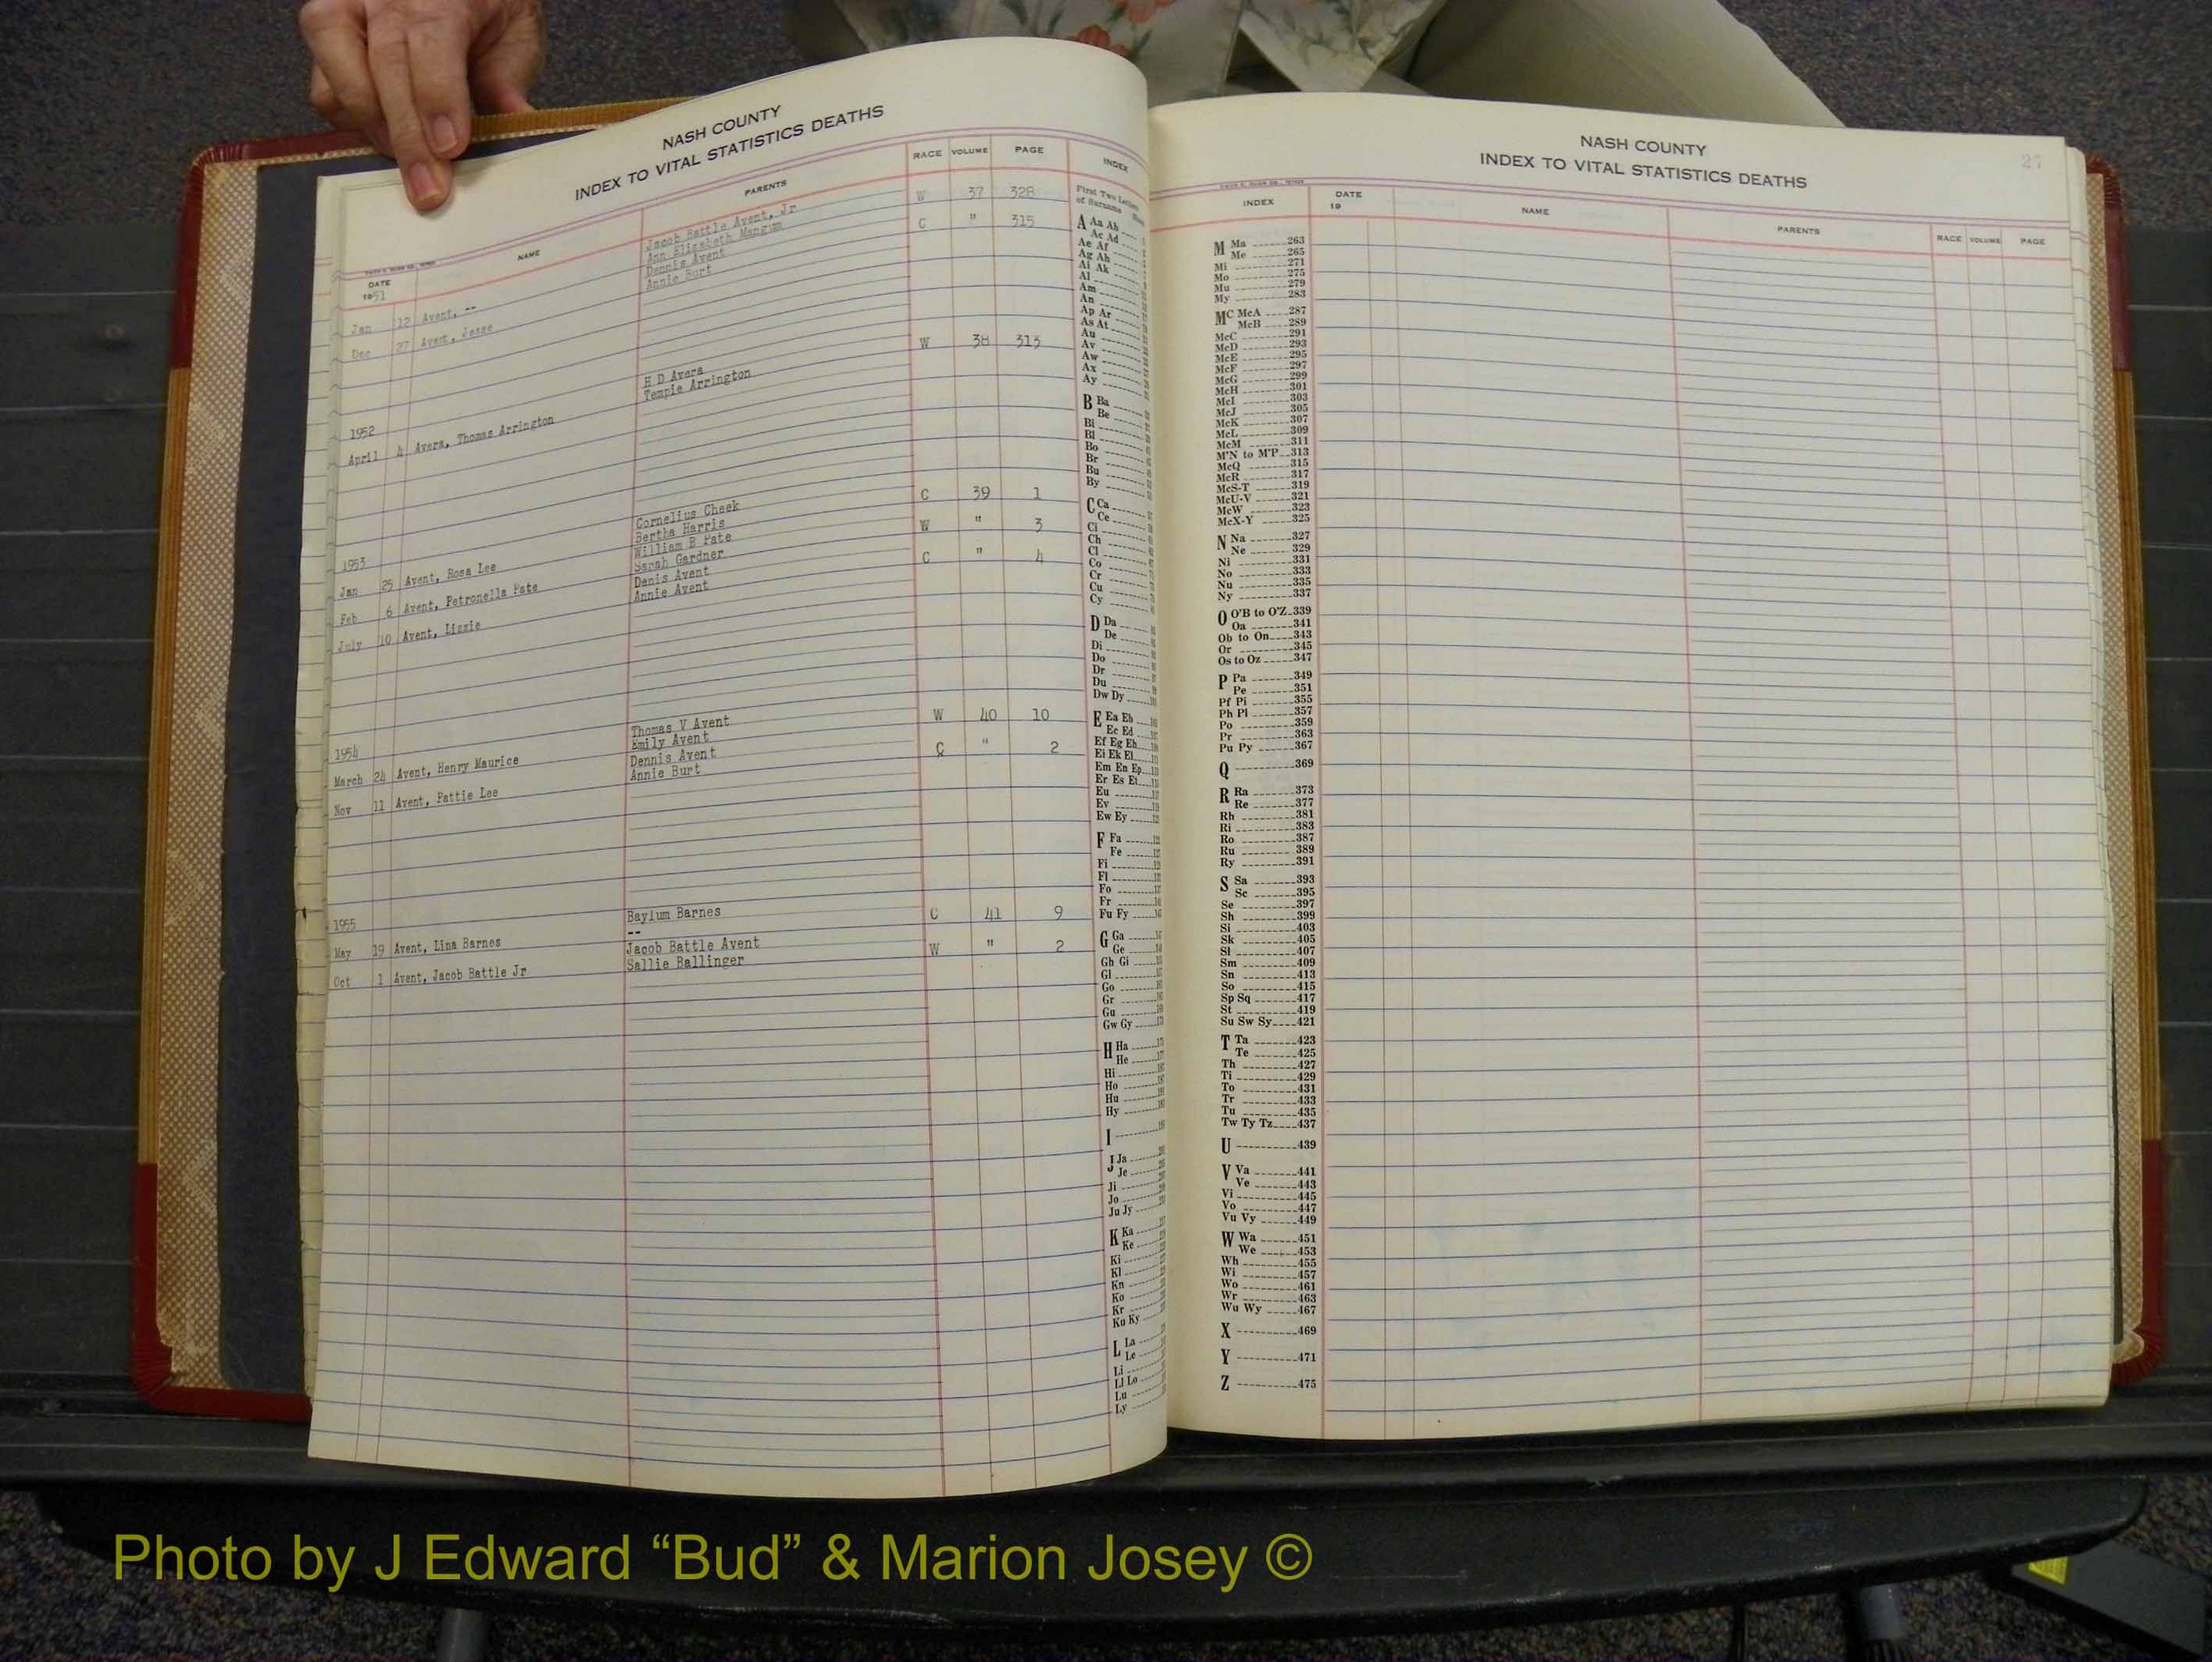 NASH COUNTY
INDEX TO VITAL STATISTICS DEATHS
DATE 1951 NAME PARENTS RACE VOLUME PAGE
Jan 12 Avent, -- Jacob Battle Avent, Jr W 37 328
Ann Elizabeth Mangum
Dec 27 Avent, Jesse Dennis Avent C " 315
Annie Burt
1952
April 4 Avera, Thomas Arrington H D Avera W 38 313
Tempie Arrington
1953
Jan 25 Avent, Rosa Lee Cornelius Cheek C 39 1
Bertha Harris
Feb 6 Avent, Petronella Pate William B Pate W " 3
Sarah Gardner
July 10 Avent, Lizzie Denis Avent C " 4
Annie Avent
1954
March 24 Avent, Henry Maurice Thomas V Avent W 40 10
Emily Avent
Nov 11 Avent, Pattie Lee Dennis Avent C " 2
Annie Burt
1955
May 19 Avent, Lina Barnes Baylum Barnes C 41 9
--
Oct 1 Avent, Jacob Battle Jr Jacob Battle Avent W " 2
Sallie Ballinger
INDEX
First Two Letters
of Surname
A Aa Ab
Ac Ad
Ae Af
Ag Ah
Ai Ak
Al
Am
An
Ap Ar
As At
Au
Av
Aw
Ax
Ay
B Ba
Be
Bi
Bl
Bo
Br
Bu
By
C Ca
Ce
Ci
Ch
Cl
Co
Cr
Cu
Cy
D Da
De
Di
Do
Dr
Du
Dw Dy
E Ea Eb
Ec Ed
Ef Eg Eh
Ei Ek El
Em En Ep
Er Es Et
Eu
Ev
Ew Ey
F Fa
Fe
Fi
Fl
Fo
Fr
Fu Fy
G Ga
Ge
Gh Gi
Gl
Go
Gr
Gu
Gw Gy
H Ha
He
Hi
Ho
Hu
Hy
I
J Ja
Je
Ji
Jo
Ju Jy
K Ka
Ke
Ki
Kl
Kn
Ko
Kr
Ku Ky
L La
Le
Li
Ll Lo
Lu
Ly
NASH COUNTY
INDEX TO VITAL STATISTICS DEATHS
27
INDEX DATE 19 NAME PARENTS RACE VOLUME PAGE
M Ma 263
Me 265
Mi 271
Mo 275
Mu 279
My 283
MC McA 287
McB 289
McC 291
McD 293
McE 295
McF 297
McG 299
McH 301
McI 303
McJ 305
McK 307
McL 309
McM 311
M'N to M'P 313
McQ 315
McR 317
McS-T 319
McU-V 321
McW 323
McX-Y 325
N Na 327
Ne 329
Ni 331
No 333
Nu 335
Ny 337
O O'B to O'Z 339
Oa 341
Ob to On 343
Or 345
Os to Oz 347
P Pa 349
Pe 351
Pf Pi 355
Ph Pl 357
Po 359
Pr 363
Pu Py 367
Q 369
R Ra 373
Re 377
Rh 381
Ri 383
Ro 387
Ru 389
Ry 391
S Sa 393
Sc 395
Se 397
Sh 399
Si 403
Sk 405
Sl 407
Sm 409
Sn 413
So 415
Sp Sq 417
St 419
Su Sw Sy 421
T Ta 423
Te 425
Th 427
Ti 429
To 431
Tr 433
Tu 435
Tw Ty Tz 437
U 439
V Va 441
Ve 443
Vi 445
Vo 447
Vu Vy 449
W Wa 451
We 453
Wh 455
Wi 457
Wo 461
Wr 463
Wu Wy 467
X 469
Y 471
Z 475
Photo by J Edward “Bud” & Marion Josey ©